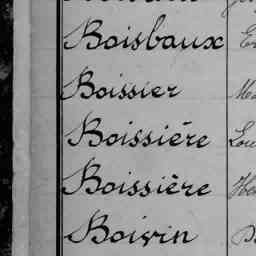 Boisbaux
Boissier
Boissière
Boissière
Boivin